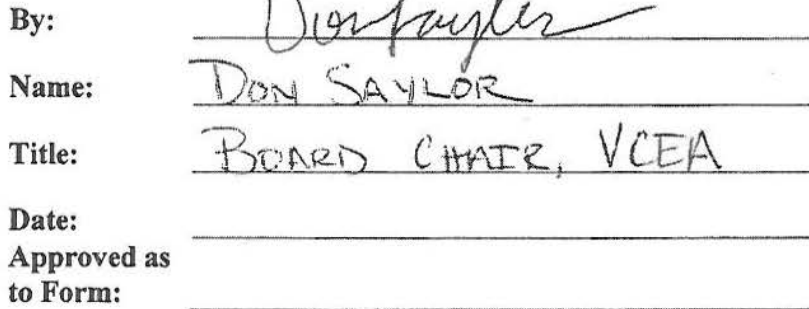 By: Don Saylor
Name: DON SAYLOR
Title: BOARD CHAIR, VCEA
Date:
Approved as
to Form: